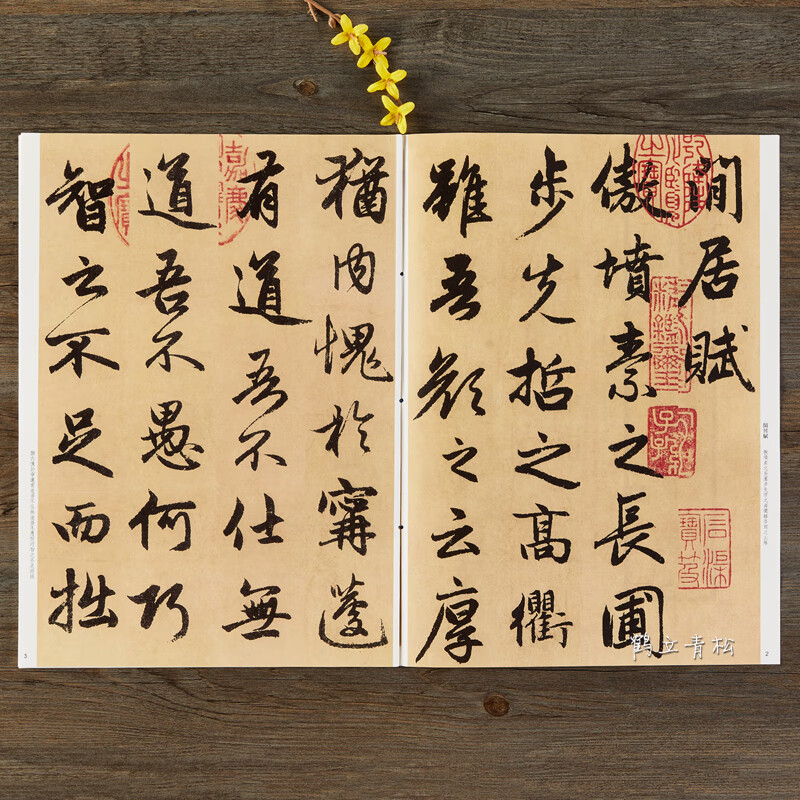 閒居賦
傲墳素之長圃
步先哲之高衢
雖吾顏之云厚
猶内愧於甯蘧
有道吾不仕無
道吾不愚何巧
智之不足而拙
鹤立青松
2
3